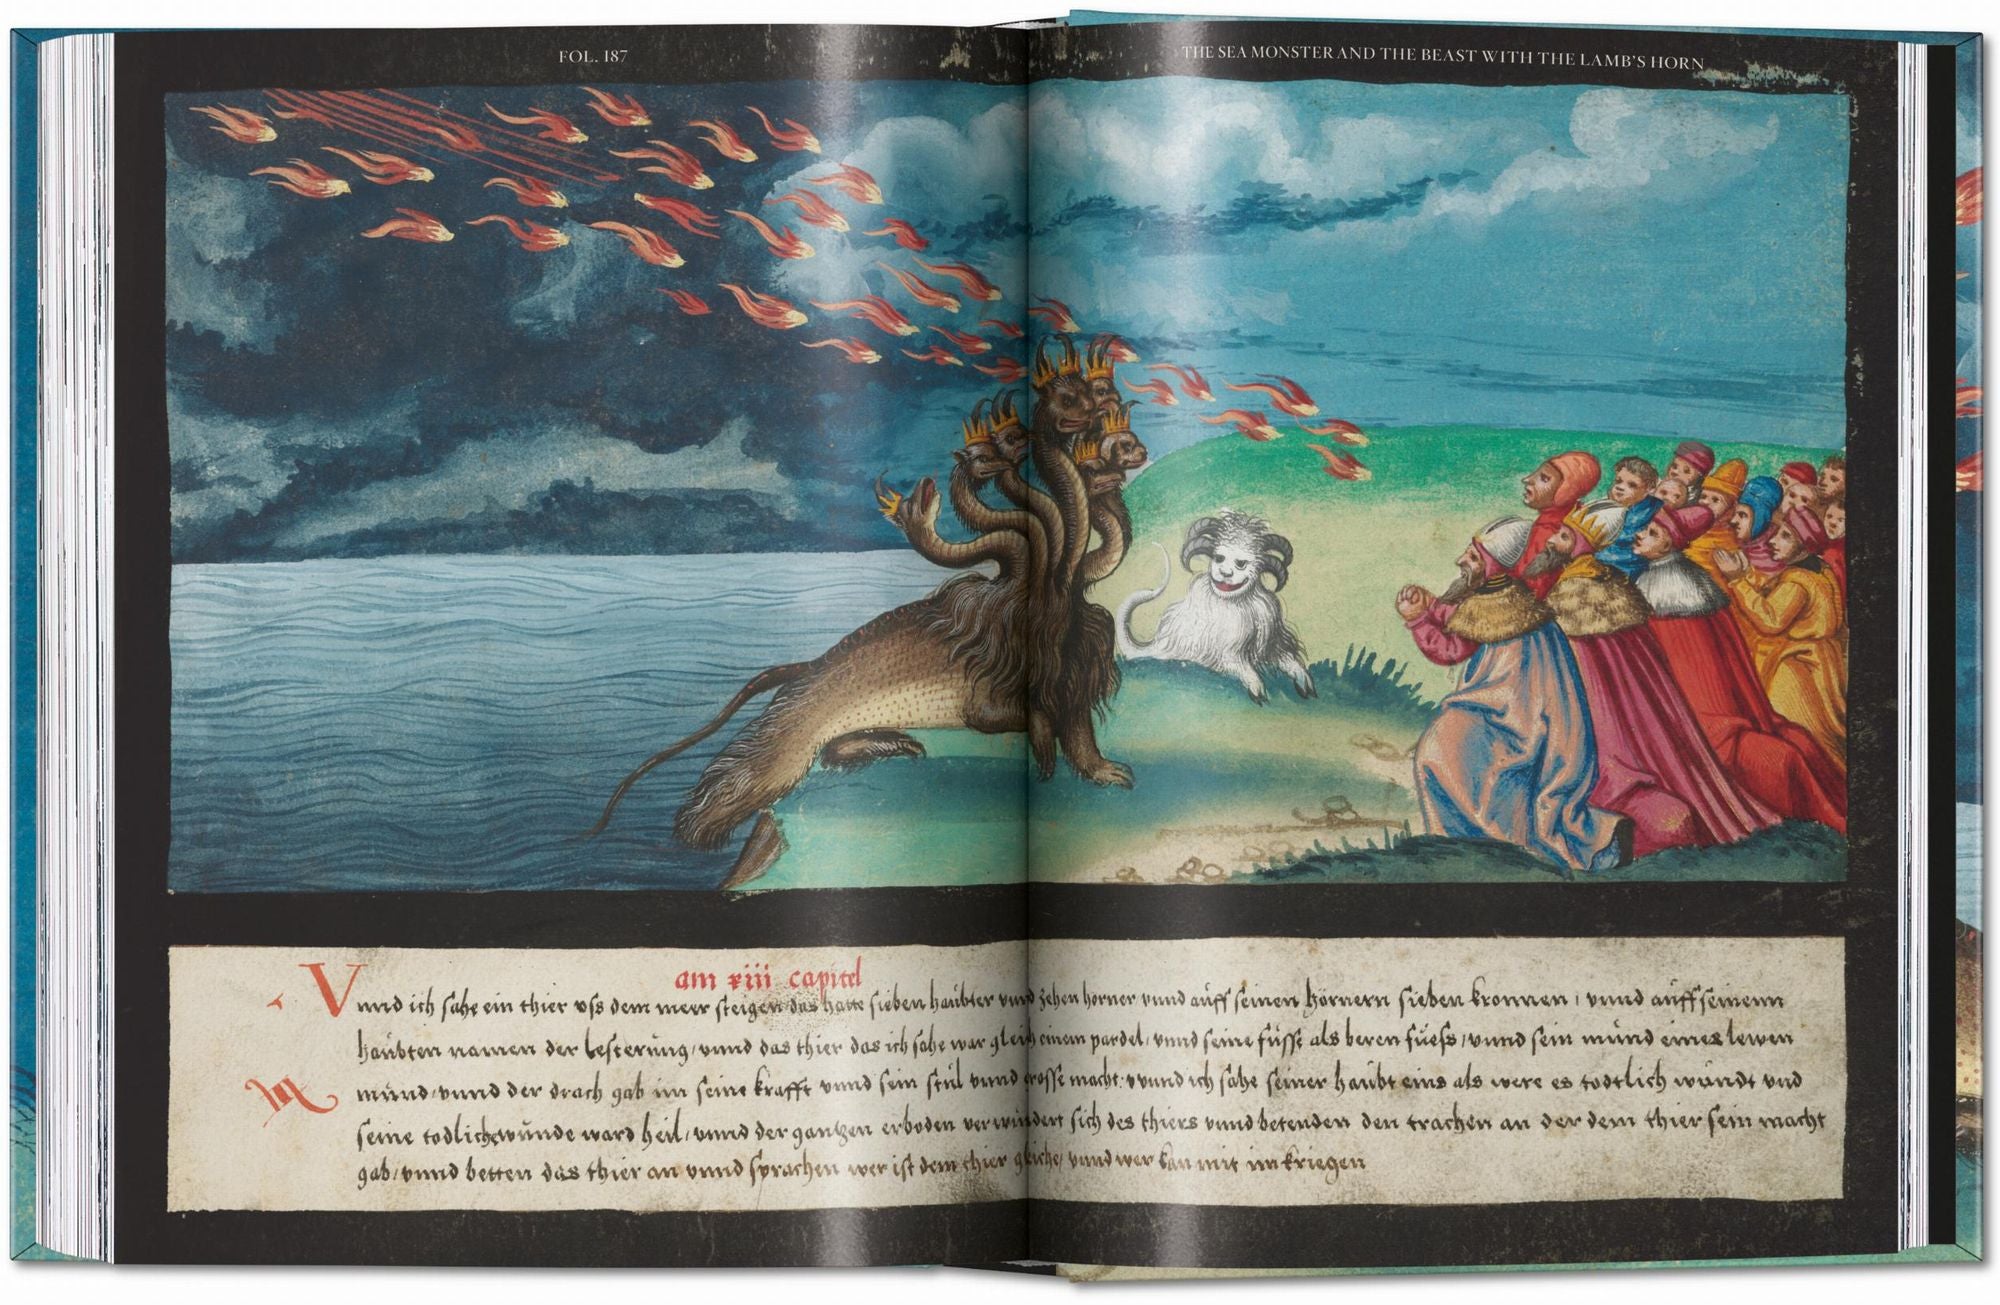 FOL. 187
THE SEA MONSTER AND THE BEAST WITH THE LAMB'S HORN
am xiii capitel
Vnnd ich sahe ein thier vss dem meer steigen das hatte sieben haübter vnnd zehen hörner vnnd aüff seinen hörnern sieben kronnen, vnnd aüff seinenn
haübten namen der lesterüng, vnnd das thier das ich sahe war gleich einem pardel, vnnd seine füsse als beren füess, vnnd sein münd eines lewen
münd, vnnd der drach gab im seine krafft vnnd sein stül vnnd grosse macht, vnnd ich sahe seiner haübt eins als were es todtlich wündt vnd
seine todliche wünde ward heil, vnnd der gantzen erboden verwundert sich des thiers vnnd betenden den trachen an der dem thier sein macht
gab, vnnd betten das thier an vnnd sprachen wer ist dem thier gleiche, vnnd wer kan mit im kriegen